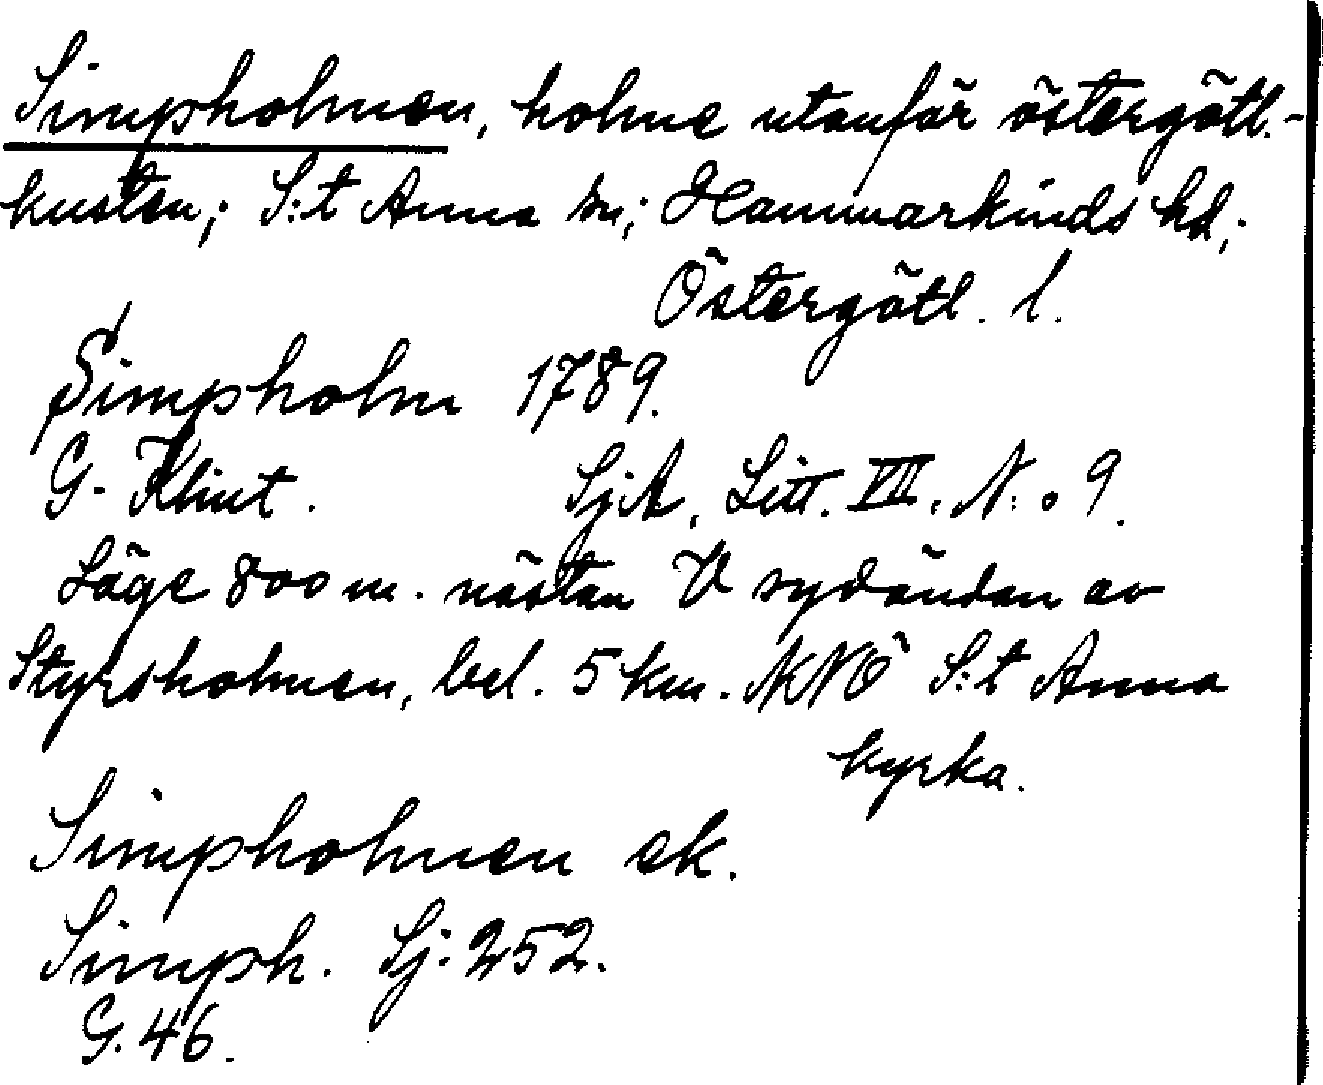 Simpholmen, holme utanför östergötl.-
kusten; S:t Anna sn; Hammarkinds hd;
Östergötl. l.
Simpholm 1789.
G. Klint. SjA, Litt. VII, N:o 9.
Läge 800 m. nästan V sydändan av
Styrsholmen, bel. 5 km. NNÖ S:t Anna
kyrka.
Simpholmen ek.
Simph. Sj: 252.
G. 46.